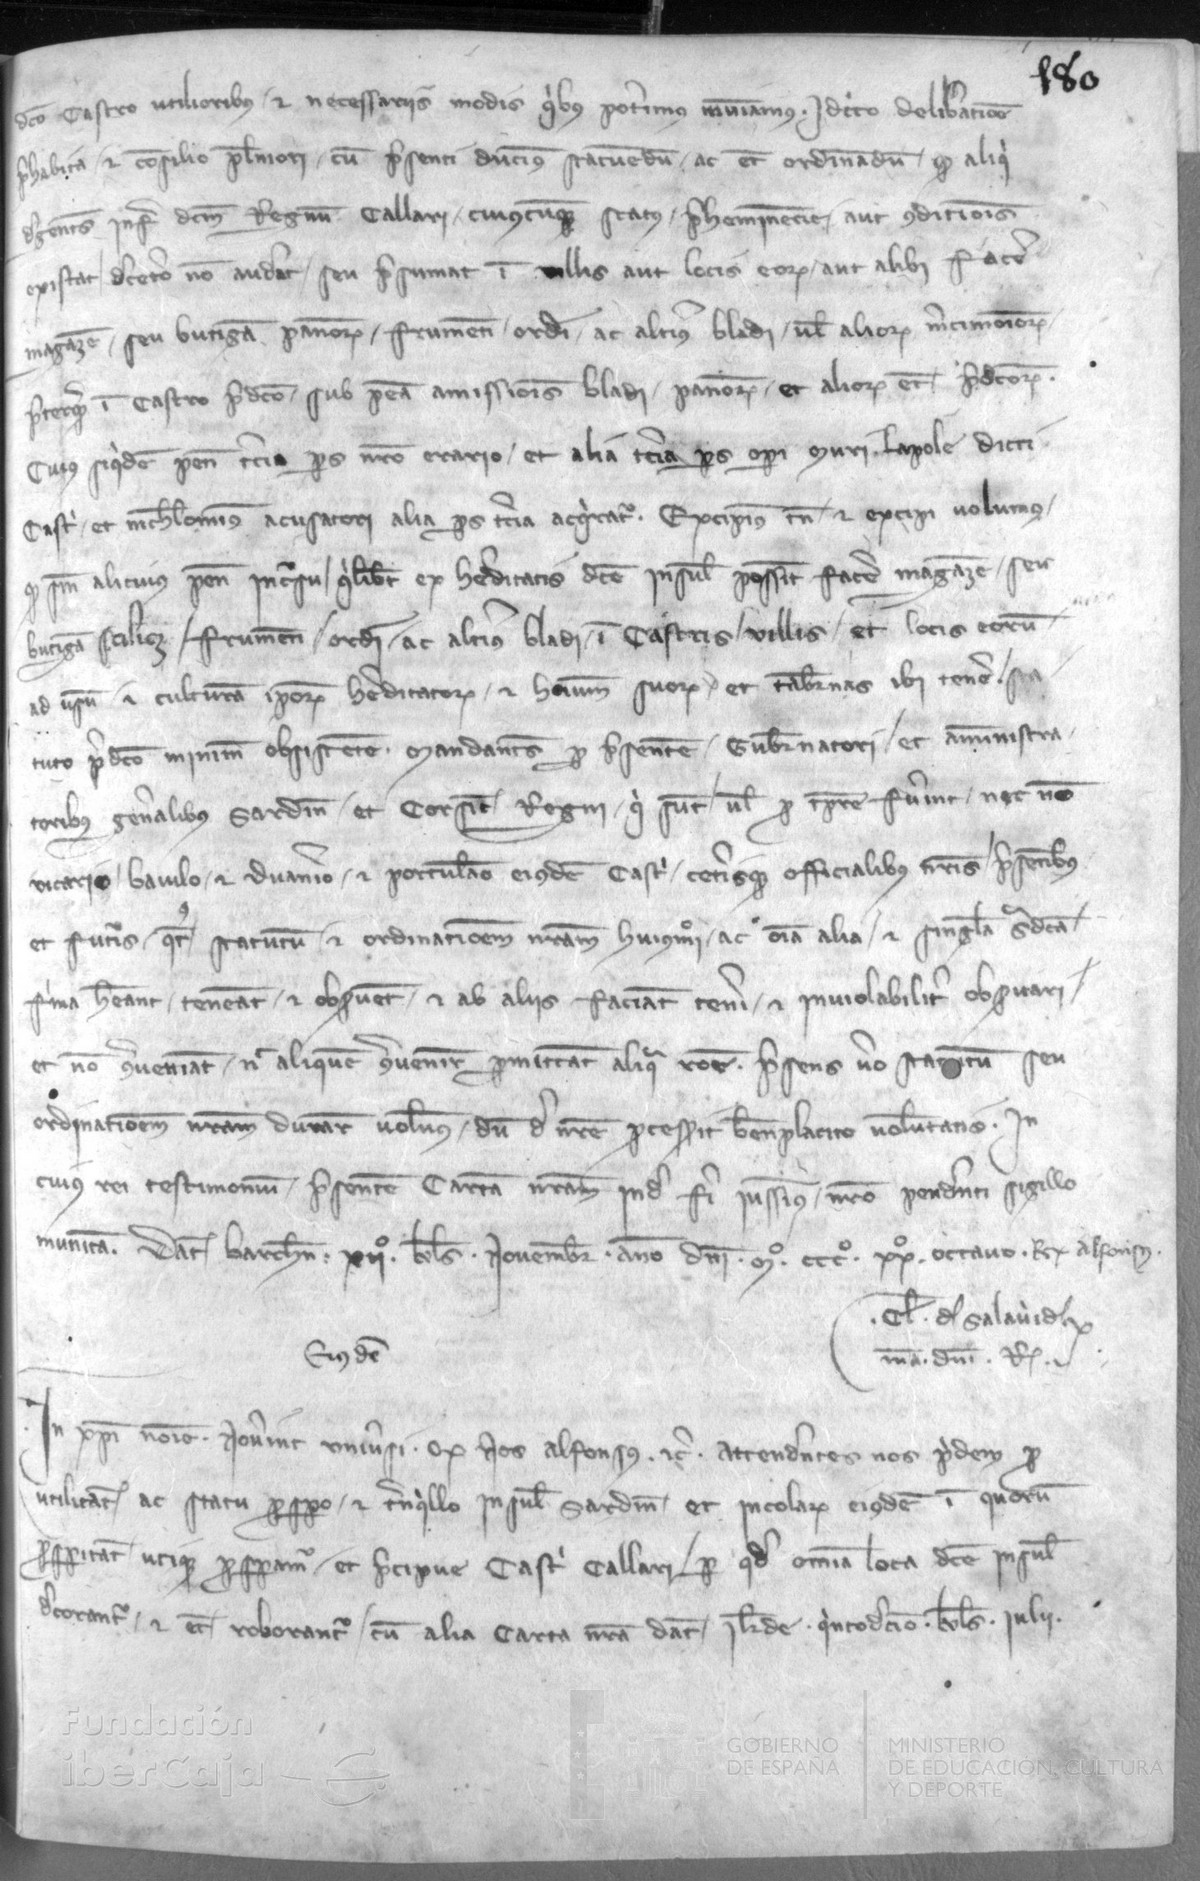 180
dco Castro utilioribus / et necessariis modis quibus poterimus muniamus. Idcirco deliberatione
prehabita / et consilio pleniori / cum presenti ducimus statuendum / ac etiam ordinandum / quod aliqui
degentes infra dictum Regnum Callari / cuiuscumque status / preheminencie / aut condicionis
existat / decetero non audeat / seu presumat in villis aut locis eorum / aut alibi facere
magazen / seu butigam pannorum / frumenti / ordei / ac alterius bladi / vel aliorum mercimoniorum /
preterquam in Castro predicto / sub pena amissionis bladi / pannorum / et aliorum etiam predictorum.
Cuius siquidem pene tercia pars nostro erario / et alia tercia pars operi muri Lapole dicti
Castri / et nichilominus acusatori alia pars tercia acquiratur. Excipimus tamen / et excipi volumus /
quod sine alicuius pene incursu / quilibet ex hereditatis dicte Insule possit facere magazen / seu
butigam scilicet / frumenti / ordei / ac alterius bladi / in Castris / villis / et locis eorum
ad usum et culturam ipsorum hereditatorum / et hominum suorum / et tabernas ibi tenere / sta
tuto predicto minime obsistente. Mandantes per presentem / Gubernatori / et amministra
toribus generalibus Sardinie / et Corsice Regni / qui sunt / vel pro tempore fuerint / nec non
vicario / baiulo / et duanerio / et portulano eiusdem Castri / ceterisque officialibus nostris / presentibus
et futuris / quatenus statutum / et ordinationem nostram huiusmodi / ac omnia alia / et singula supradicta
firma habeant / teneant / et observent / et ab aliis faciant teneri / et inviolabiliter observari /
et non contraveniant / nec aliquem contravenire permittant aliqua racione. Presens vero statutum seu
ordinationem nostram durare volumus / dum de nostre processerit beneplacito voluntatis. In
cuius rei testimonium / presentem Cartam nostram inde fieri iussimus / nostro pendenti sigillo
munitam. Dat Barchinone: xiiº. kls. Novembr. anno dni. Mº. cccº. xxº. octavo. Rex Alfonsus.
.Cl. de Salavidex
ma. dni. R.
Eiusdem
In xpi noie. Noverint universi. Quod Nos Alfonsus. etc. Attendentes nos pridem pro
utilitate / ac statu prospero / et tranquillo Insule Sardinie / et incolarum eiusdem in quorum
prosperitate utique prosperamur / et precipue Castri Callari / per quod omnia loca dicte Insule
decorantur / et etiam roborantur / cum alia Carta nostra dat / Ilerde. quintodecimo. kls. Iulii.
Fundación
iberCaja
GOBIERNO
DE ESPAÑA
MINISTERIO
DE EDUCACIÓN, CULTURA
Y DEPORTE